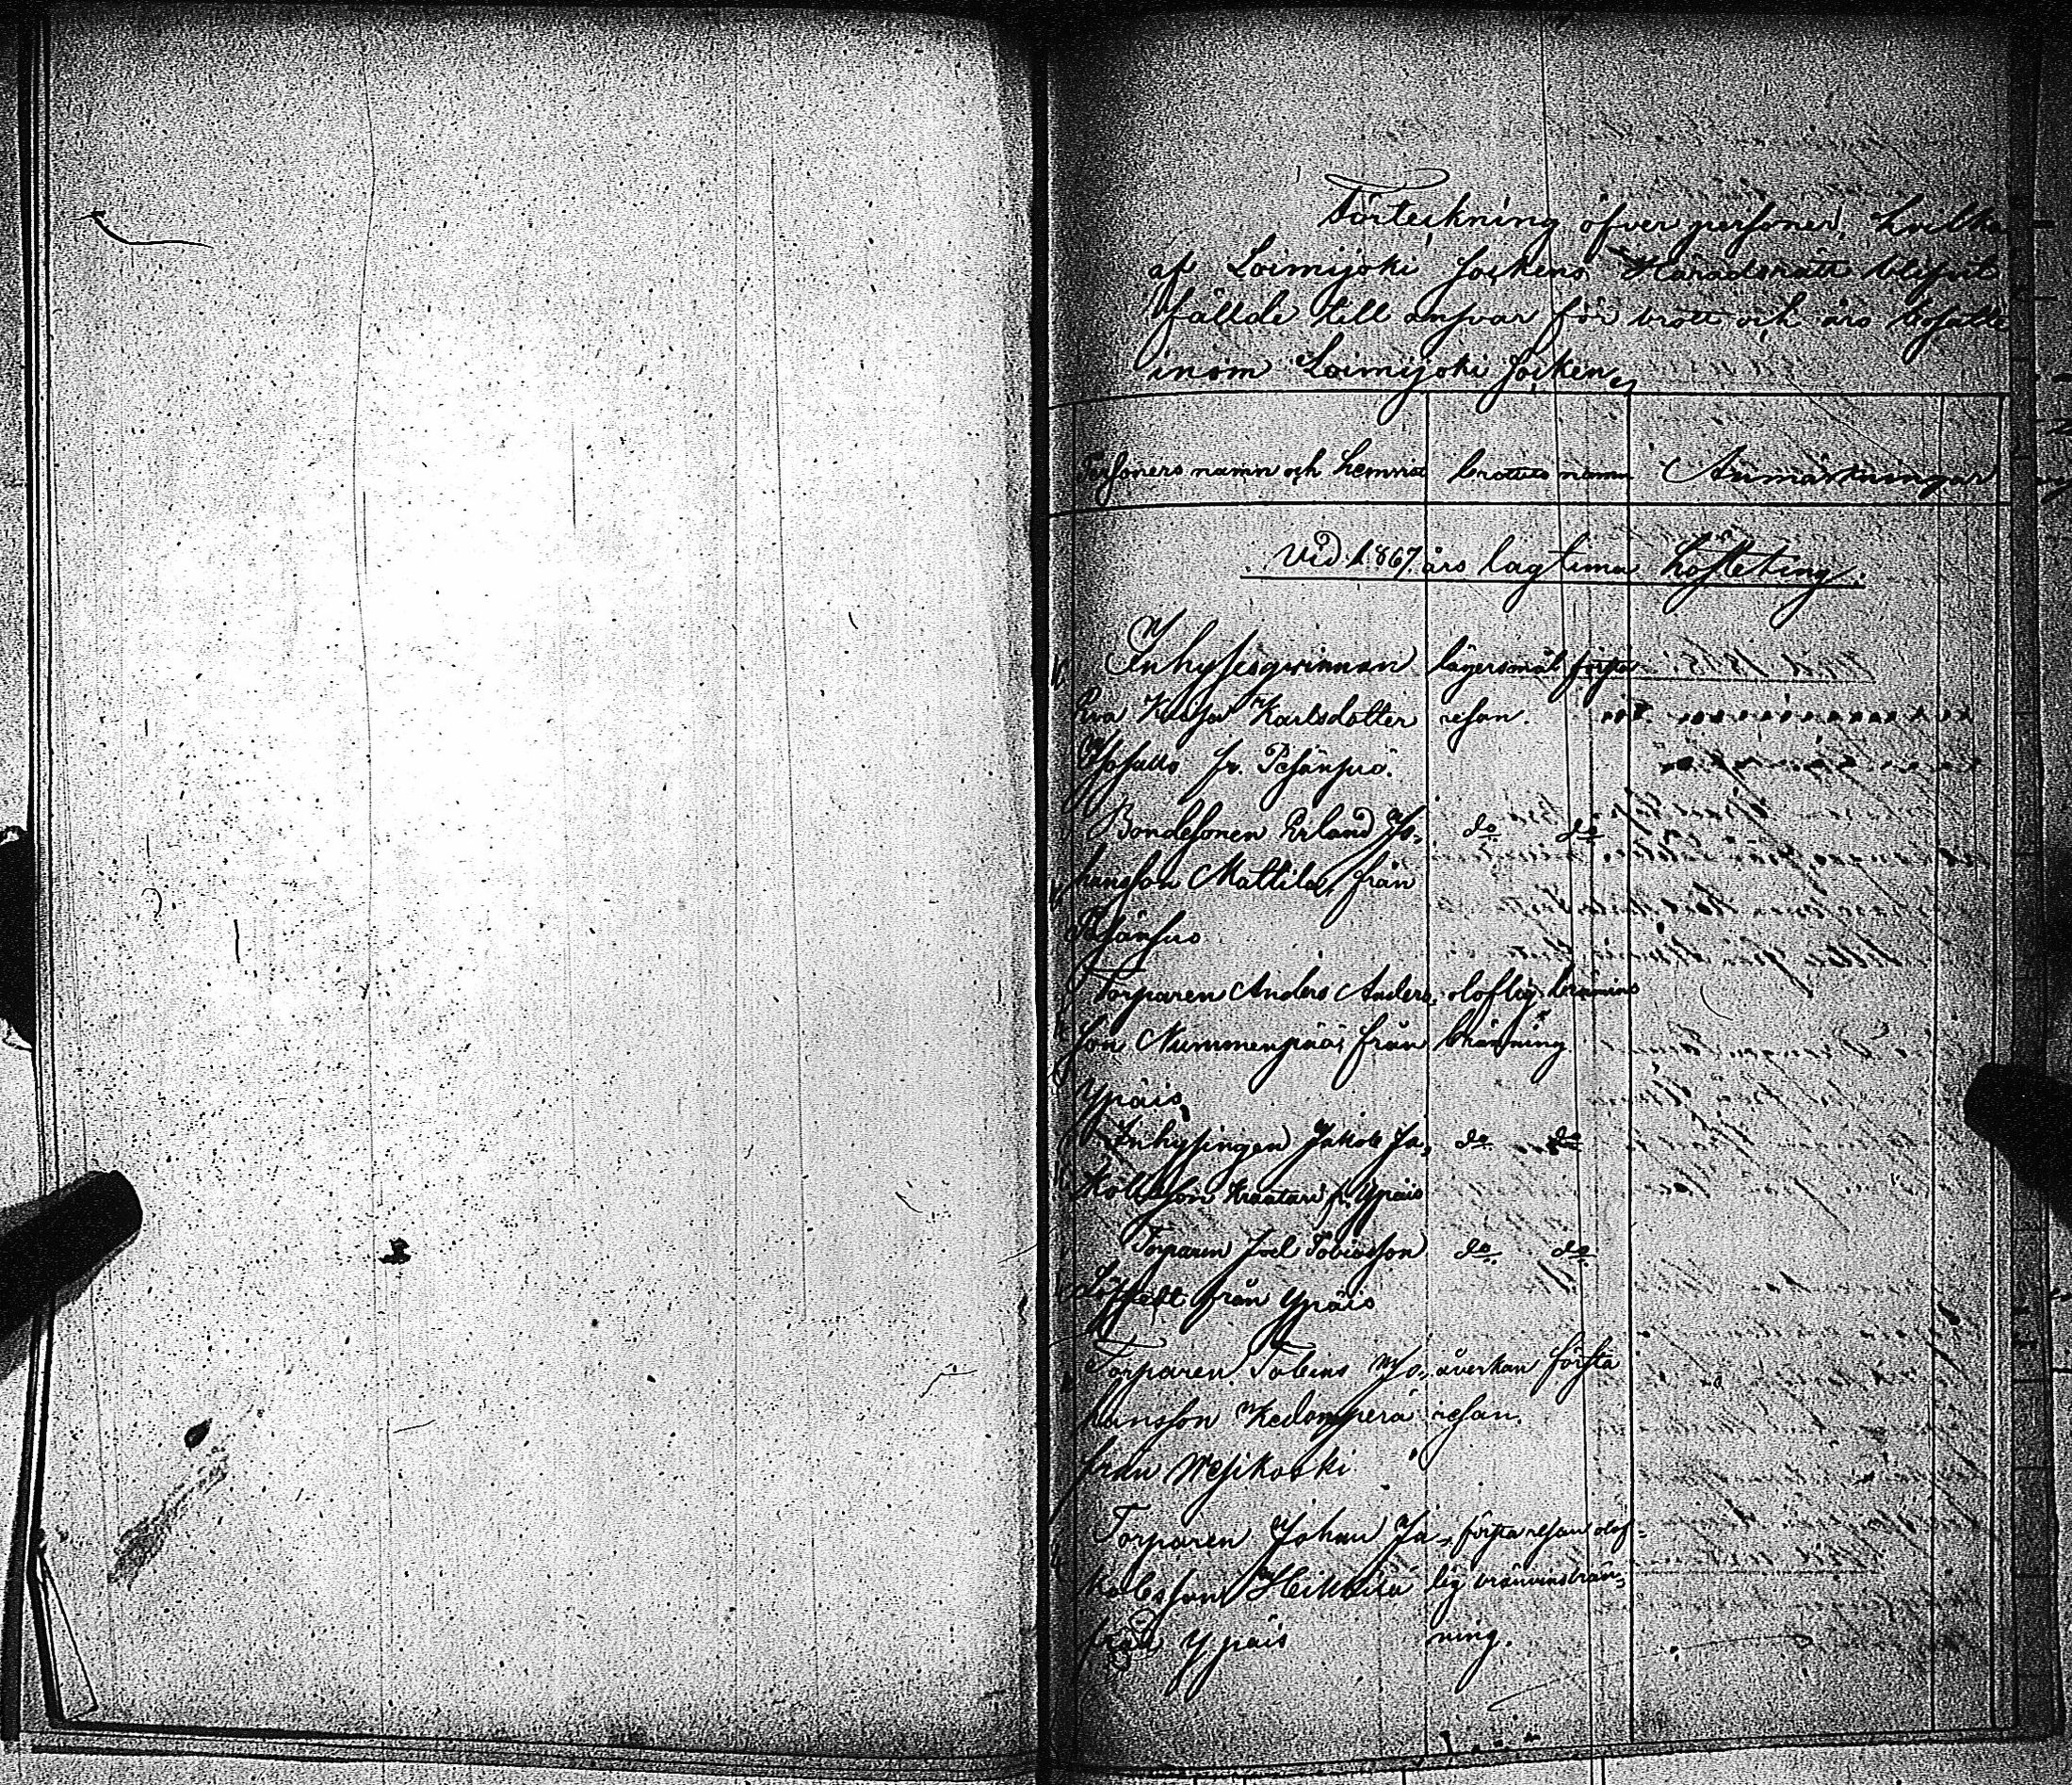 Förteckning öfver personer, hvilka
af Loimijoki Sockens Häradsrätt blifvit
fällde till ansvar för brott och äro bosatte
inom Loimijoki Socken,
Personers namn och hemvist brottets namn Anmärkningar
Vid 1867 års lagtima hösteting.
Inhysesqvinnan lägersmål första
Eva Kaisa Karlsdotter resan.
fr. Pesänsuo.
Bondesonen Erland Jo- do do
hansson Mattila, från
Pesänsuo
Torparen Anders Anders- oloflig brännvins
son Nummenpää, från bränning
Ypäis
Inhysingen Jakob Ja- do do
kobsson Kraatari fr. Ypäis
Torparen Joel Tobiasson do do
Löfstedt från Ypäis
Torparen Tobias Jo- åverkan första
hansson Kedonperä resan.
från Wesikoski
Torparen Johan Ja- första resan olof-
kobsson Heikkilä lig bränvinsbrän-
från Ypäis ning.